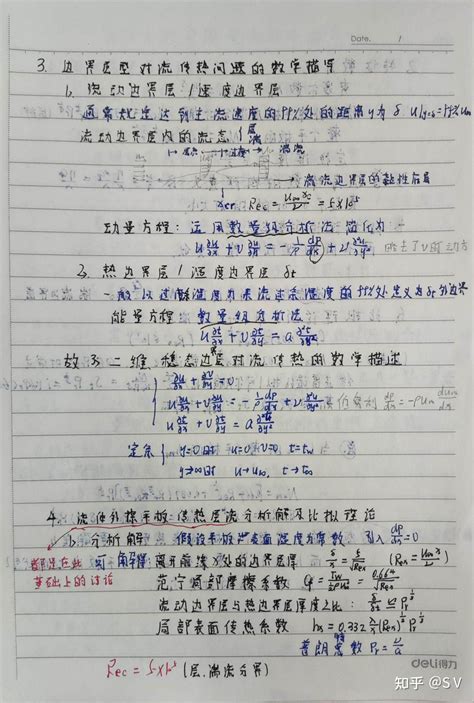 Date. /
3. 边界层型对流传热问题的数学描写
1. 流动边界层/速度边界层
通常规定达到主流速度的99%处的距离y为δ u|y=δ=99%u∞
流动边界层内的流态 { 层流 湍流
湍流边界层的黏性底层
xcr Rec = u∞xc/ν = 5×10⁵
动量方程: 运用数量级分析法 简化为
u ∂u/∂x + v ∂u/∂y = -1/ρ dp/dx + ν ∂²u/∂y²
2. 热边界层/温度边界层 δt
一般以过余温度为来流过余温度的99%处定义为δt外边界
能量方程: 数量级分析法
u ∂t/∂x + v ∂t/∂y = a ∂²t/∂y²
故: 二维、稳态边界层对流传热的数学描述
∂u/∂x + ∂v/∂y = 0
u ∂u/∂x + v ∂u/∂y = -1/ρ dp/dx + ν ∂²u/∂y² dp/dx = -ρu∞ du∞/dx
u ∂t/∂x + v ∂t/∂y = a ∂²t/∂y²
定解 { y=0时 u=0, v=0, t=tw
y→∞时 u→u∞, t→t∞
4. 流体外掠平板传热层流分析解及比拟理论
1. 分析解 假设平板表面温度为常数 引入 dp/dx=0
都是在此 可解得: 离开前缘x处的边界层厚 δ/x = 5/√Rex (Rex = u∞x/ν)
基础上的讨论 范宁局部摩擦系数 Cf = 0.664/√Rex
流动边界层与热边界层厚度之比: δ/δt ≌ Pr^1/3
局部表面传热系数 hx = 0.332 λ/x (Rex)^1/2 (Pr)^1/3
普朗特数 Pr = ν/a
Rec = 5×10⁵ (层、湍流分界)
deli得力
知乎 @SV